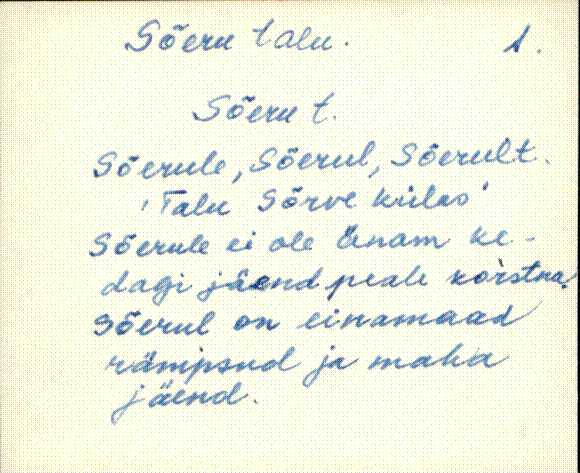 Sõeru talu. 1.
Sõeru t.
Sõerule, Sõerul, Sõerult.
'Talu Sõrve külas'
Sõerule ei ole änam ke-
dagi jäend peale korstna.
Sõerul on einamaad
rämpsnd ja maha
jäend.